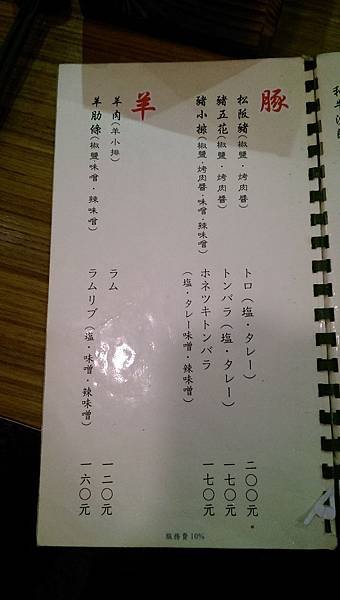 豚
松阪豬(椒鹽·烤肉醬) トロ(塩·タレー) 二〇〇元
豬五花(椒鹽·烤肉醬) トンバラ(塩·タレー) 一七〇元
豬小排(椒鹽·烤肉醬·味噌·辣味噌) ホネツキトンバラ 一七〇元
(塩·タレー味噌·辣味噌)
羊
羊肉(羊小排) ラム 一二〇元
羊肋條(椒鹽·味噌·辣味噌) ラムリブ(塩·味噌·辣味噌) 一六〇元
服務費10%